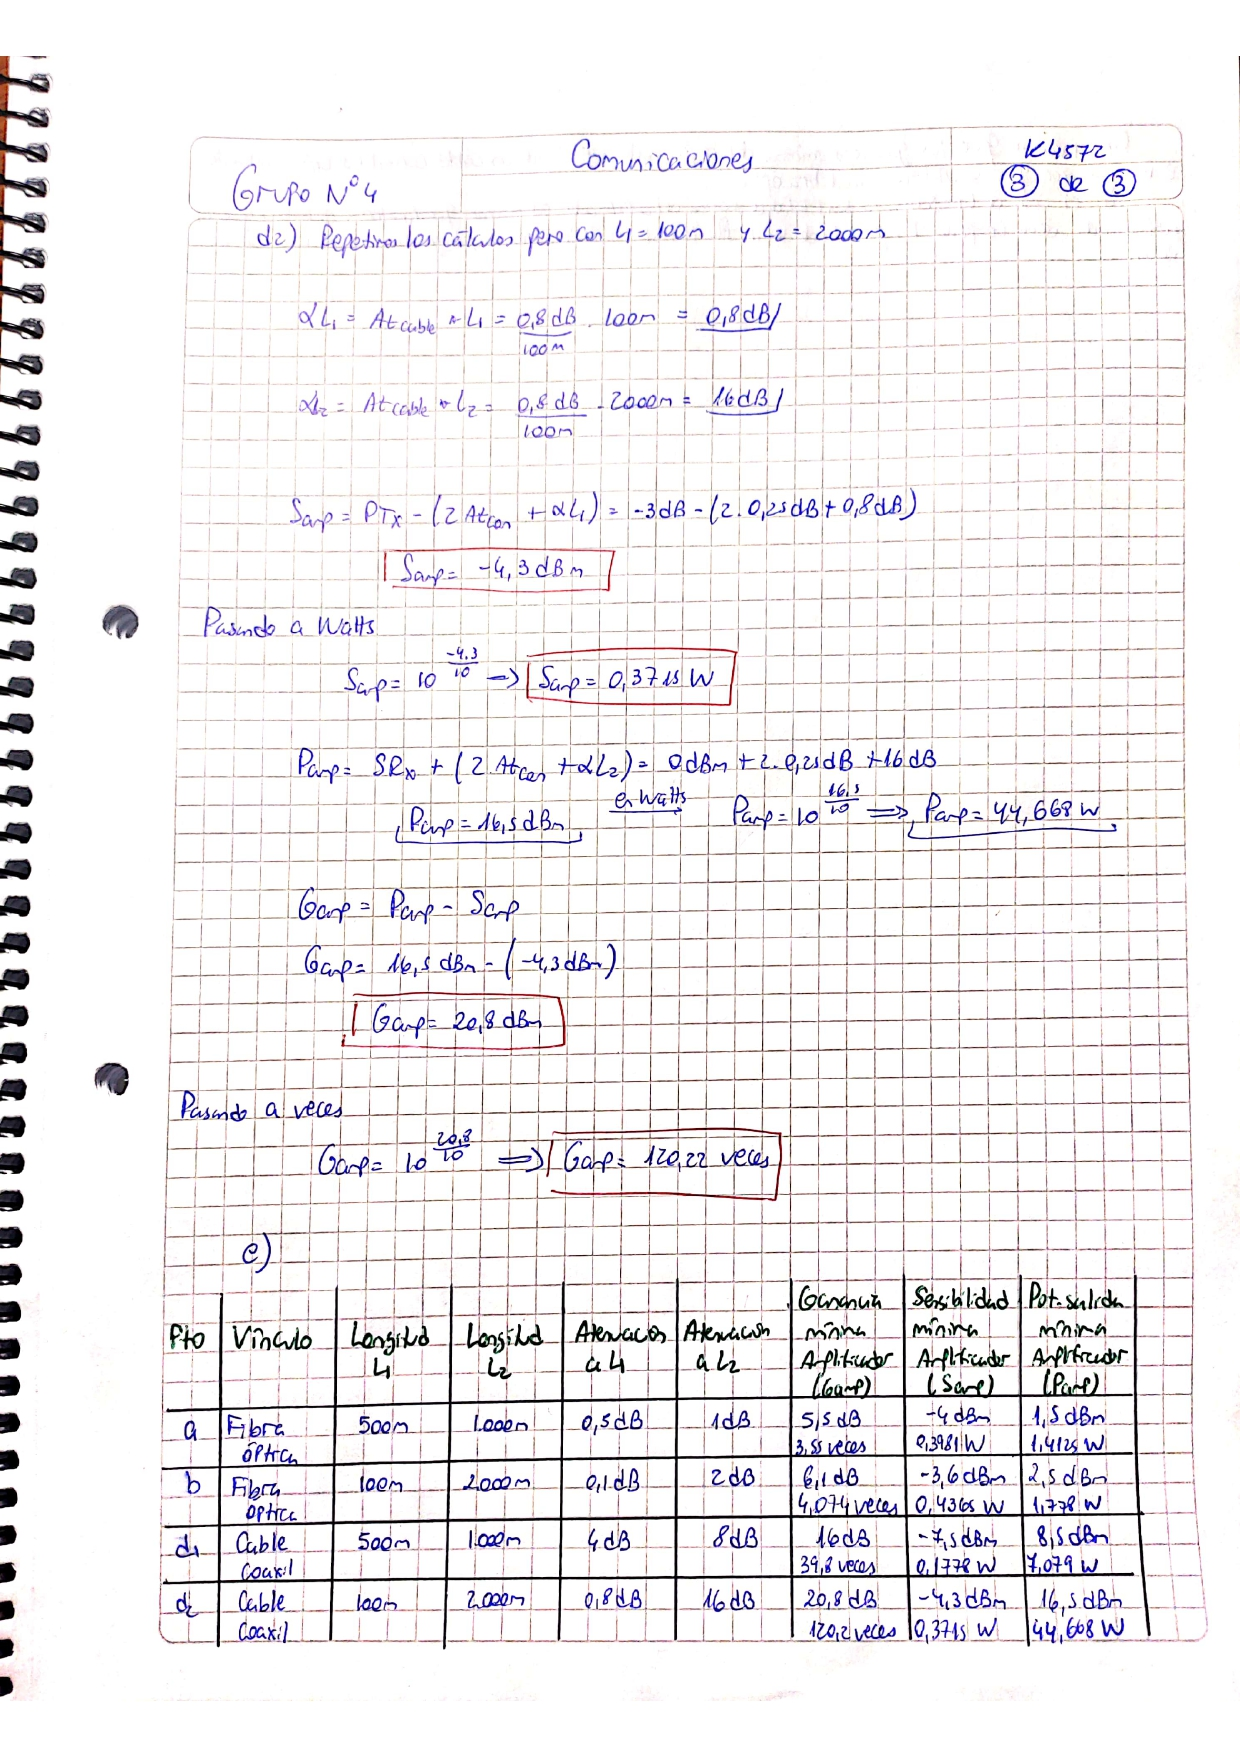 Grupo N°4
Comunicaciones
K4572
3 de 3
d2) Repetimos los cálculos pero con L1 = 100m y L2 = 2000m
αL1 = Atcable * L1 = 0,8dB/100m . 100m = 0,8dB/
αL2 = Atcable * L2 = 0,8dB/100m . 2000m = 16dB/
Samp = PTx - (2 Atcon + αL1) = -3dB - (2 . 0,25dB + 0,8dB)
Samp = -4,3dBm
Pasando a Watts
Samp = 10^(-4,3/10) => Samp = 0,3715 W
Pamp = SRx + (2 . Atcon + αL2) = 0dBm + 2 . 0,25dB + 16dB
Pamp = 16,5dBm en Watts → Pamp = 10^(16,5/10) => Pamp = 44,668 W
Gamp = Pamp - Samp
Gamp = 16,5 dBm - (-4,3dBm)
Gamp = 20,8 dBm
Pasando a veces
Gamp = 10^(20,8/10) => Gamp = 120,22 veces
e)
Pto Vínculo Longitud L1 Longitud L2 Atenuación a L1 Atenuación a L2 Ganancia mínima Amplificador (Gamp) Sensibilidad mínima Amplificador (Samp) Pot. salida mínima Amplificador (Pamp)
a Fibra óptica 500m 1.000m 0,5dB 1dB 5,5dB 3,55 veces -4dBm 0,3981W 1,5dBm 1,4125 W
b Fibra óptica 100m 2.000m 0,1dB 2dB 6,1dB 4,074 veces -3,6dBm 0,4365 W 2,5dBm 1,778 W
d1 Cable Coaxil 500m 1.000m 4dB 8dB 16dB 39,8 veces -7,5dBm 0,1778 W 8,5dBm 7,079 W
d2 Cable Coaxil 100m 2.000m 0,8dB 16dB 20,8dB 120,2 veces -4,3dBm 0,3715 W 16,5dBm 44,668 W